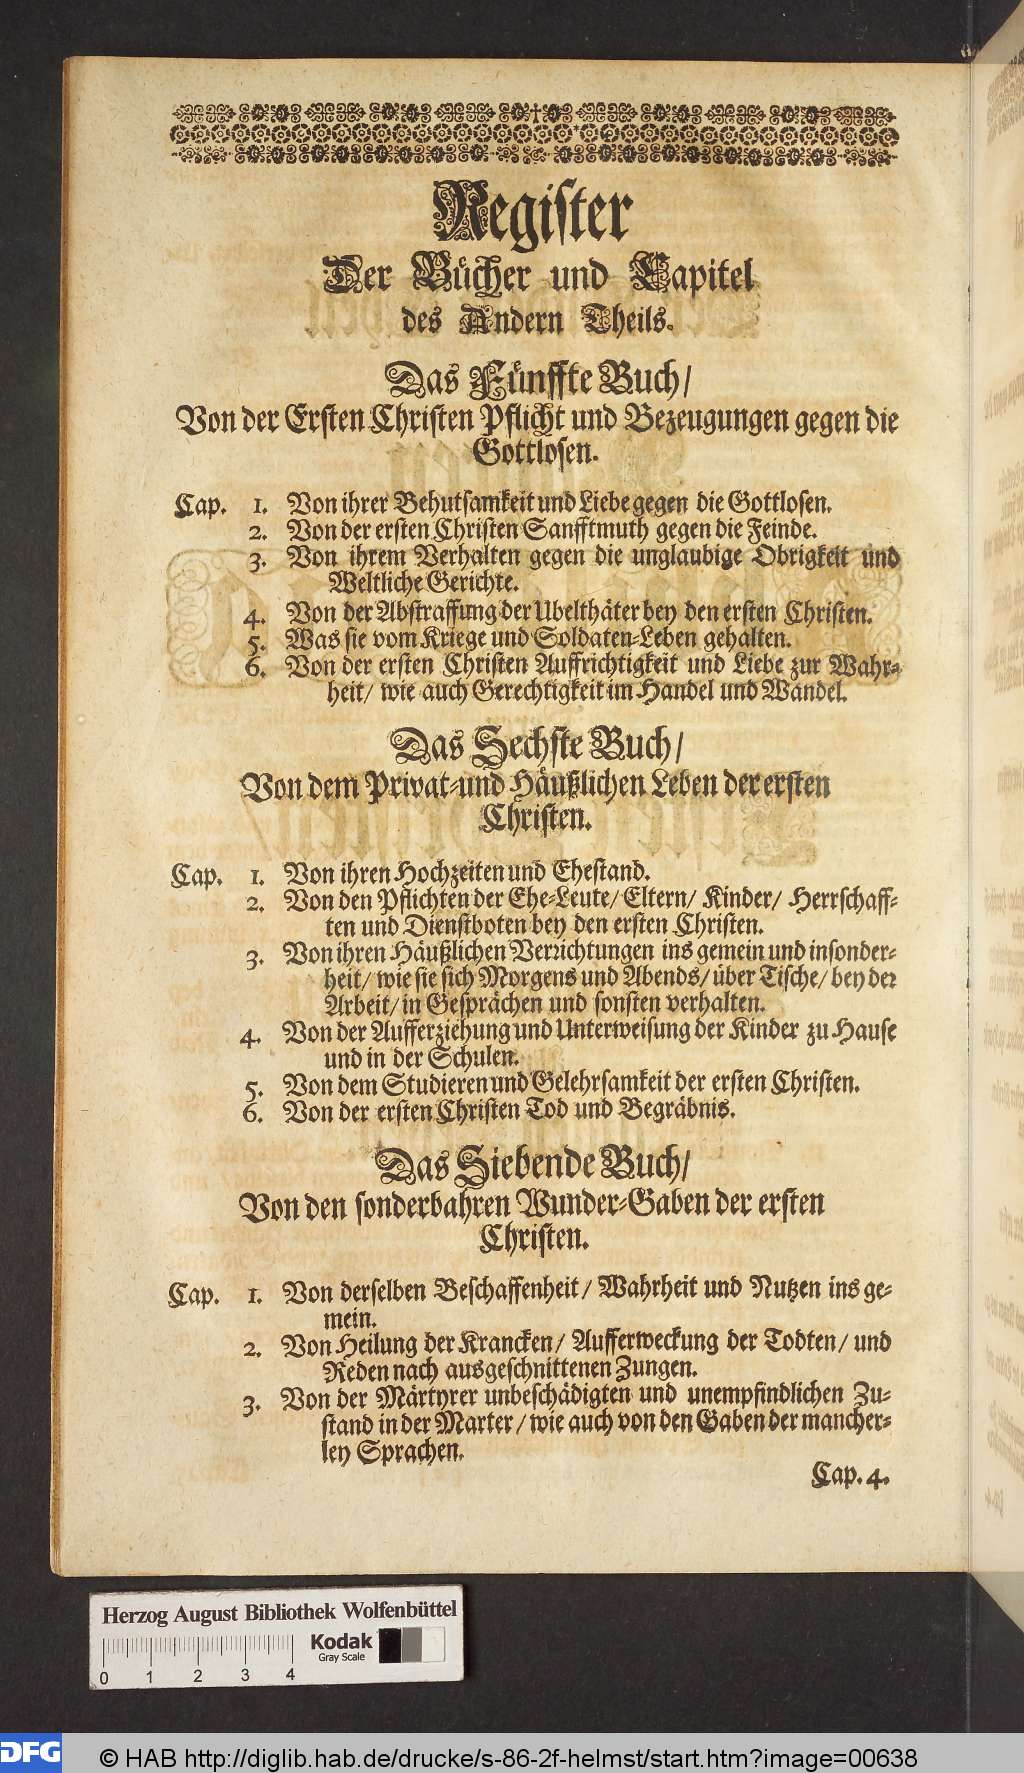 Register
Der Bücher und Capitel
des Andern Theils.
Das Fünffte Buch/
Von der Ersten Christen Pflicht und Bezeugungen gegen die
Gottlosen.
Cap. 1. Von ihrer Behutsamkeit und Liebe gegen die Gottlosen.
2. Von der ersten Christen Sanfftmuth gegen die Feinde.
3. Von ihrem Verhalten gegen die unglaubige Obrigkeit und
Weltliche Gerichte.
4. Von der Abstraffung der Ubelthäter bey den ersten Christen.
5. Was sie vom Kriege und Soldaten-Leben gehalten.
6. Von der ersten Christen Auffrichtigkeit und Liebe zur Wahr-
heit/ wie auch Gerechtigkeit im Handel und Wandel.
Das Sechste Buch/
Von dem Privat-und Häußlichen Leben der ersten
Christen.
Cap. 1. Von ihren Hochzeiten und Ehestand.
2. Von den Pflichten der Ehe-Leute/ Eltern/ Kinder/ Herrschaff-
ten und Dienstboten bey den ersten Christen.
3. Von ihren Häußlichen Verrichtungen ins gemein und insonder-
heit/ wie sie sich Morgens und Abends/ über Tische/ bey der
Arbeit/ in Gesprächen und sonsten verhalten.
4. Von der Aufferziehung und Unterweisung der Kinder zu Hause
und in der Schulen.
5. Von dem Studieren und Gelehrsamkeit der ersten Christen.
6. Von der ersten Christen Tod und Begräbnis.
Das Siebende Buch/
Von den sonderbahren Wunder-Gaben der ersten
Christen.
Cap. 1. Von derselben Beschaffenheit/ Wahrheit und Nutzen ins ge-
mein.
2. Von Heilung der Krancken/ Aufferweckung der Todten/ und
Reden nach ausgeschnittenen Zungen.
3. Von der Märtyrer unbeschädigten und unempfindlichen Zu-
stand in der Marter/ wie auch von den Gaben der mancher-
ley Sprachen.
Cap. 4.
Herzog August Bibliothek Wolfenbüttel
Kodak
Gray Scale
0 1 2 3 4
DFG
© HAB http://diglib.hab.de/drucke/s-86-2f-helmst/start.htm?image=00638